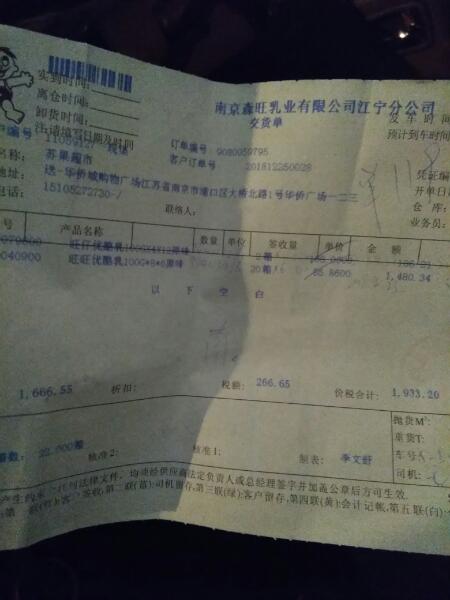 实到时间:
南京森旺乳业有限公司江宁分公司
离仓时间:
交货单
发车时间
卸货时间:
预计到车时间
注:请填写日期及时间
编号 11059127
订单编号 9080059795
客户订单号 201812250028
凭证编
名称: 苏果超市
开单日
送-华侨城购物广场江苏省南京市浦口区大桥北路1号华侨广场一二三
仓库:
电话: 15105272730-/
联络人:
业务员:
号 产品名称 数量 单位 签收量 单价 金额
旺仔优酪乳100GX4X12原味
040900 旺旺优酪乳100G*8*6原味 20箱 1,480.34
以下空白
1,666.55 折扣: 税额: 266.65 价税合计: 1,933.20
抛货M³:
重货T:
箱数: 22.000箱 核准2: 核准1: 制表: 李文舒
车号
司机:
均须经供应商法定负责人或总经理签字并加盖公章后方可生效.
签收,第二联(蓝):司机留存,第三联(绿):客户留存,第四联(黄):会计记帐,第五联(白):